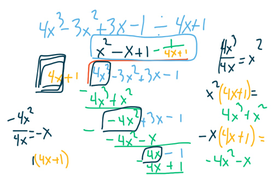 4x³-3x²+3x-1 ÷ 4x+1
x²-x+1-1/(4x+1)
4x+1 4x³-3x²+3x-1
4x³+x²
-4x²+3x-1
-4x²-x
4x-1
4x+1
4x³/4x=x²
x²(4x+1)=
4x³+x²
-x(4x+1)=
-4x²-x
-4x²/4x=-x
1(4x+1)